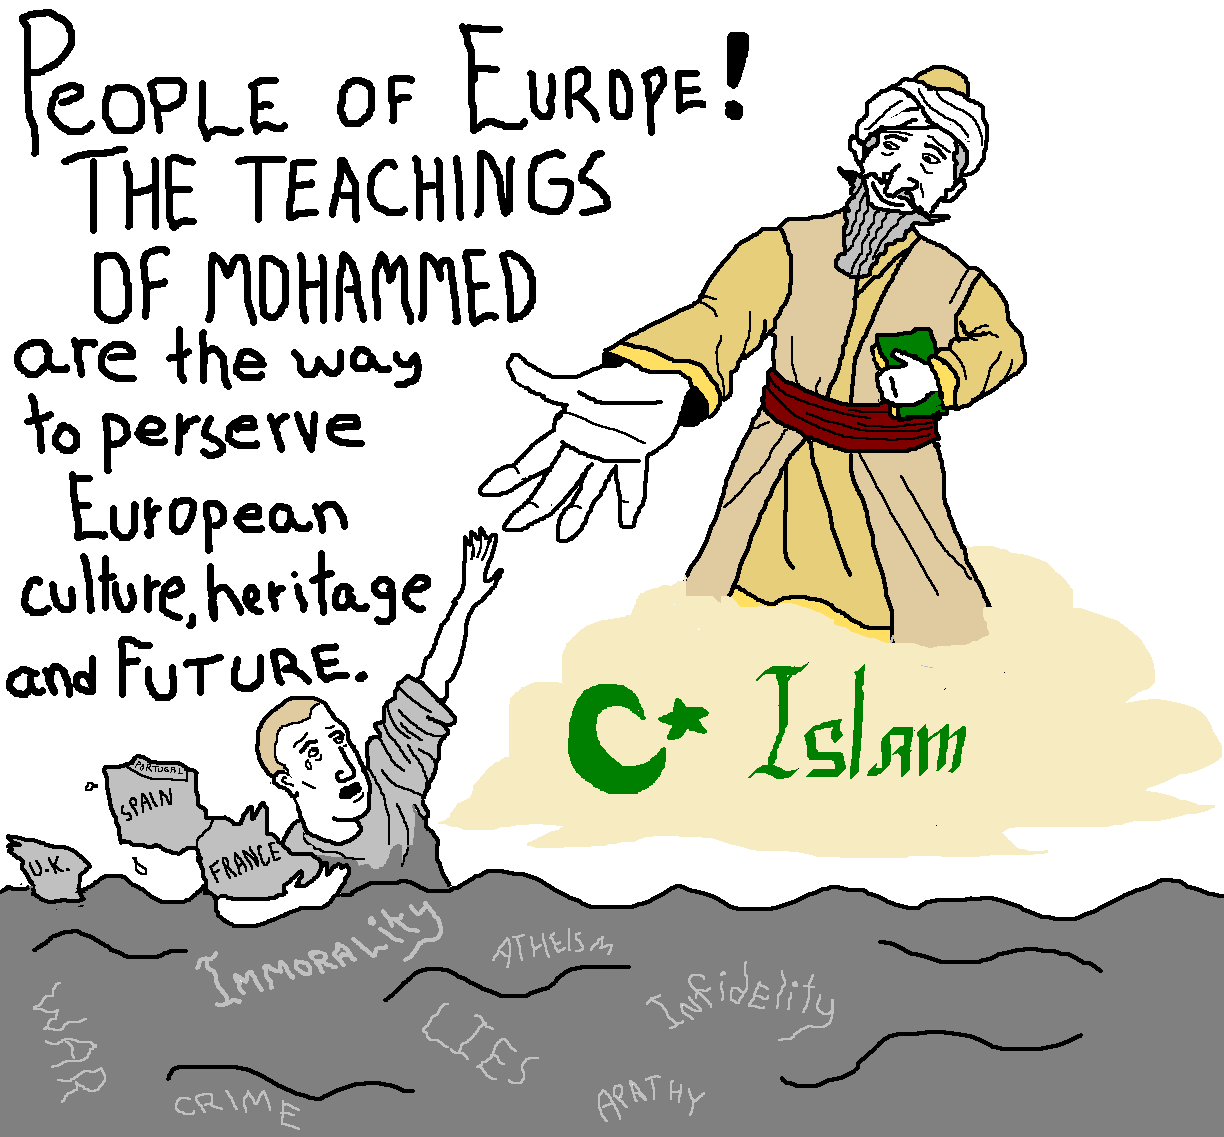 PEOPLE OF EUROPE!
THE TEACHINGS
OF MOHAMMED
are the way
to perserve
European
culture, heritage
and FUTURE.
Islam
PORTUGAL
SPAIN
U.K.
FRANCE
IMMORALity
ATHEISM
InfidElity
WAR
LIES
CRIME
APATHY